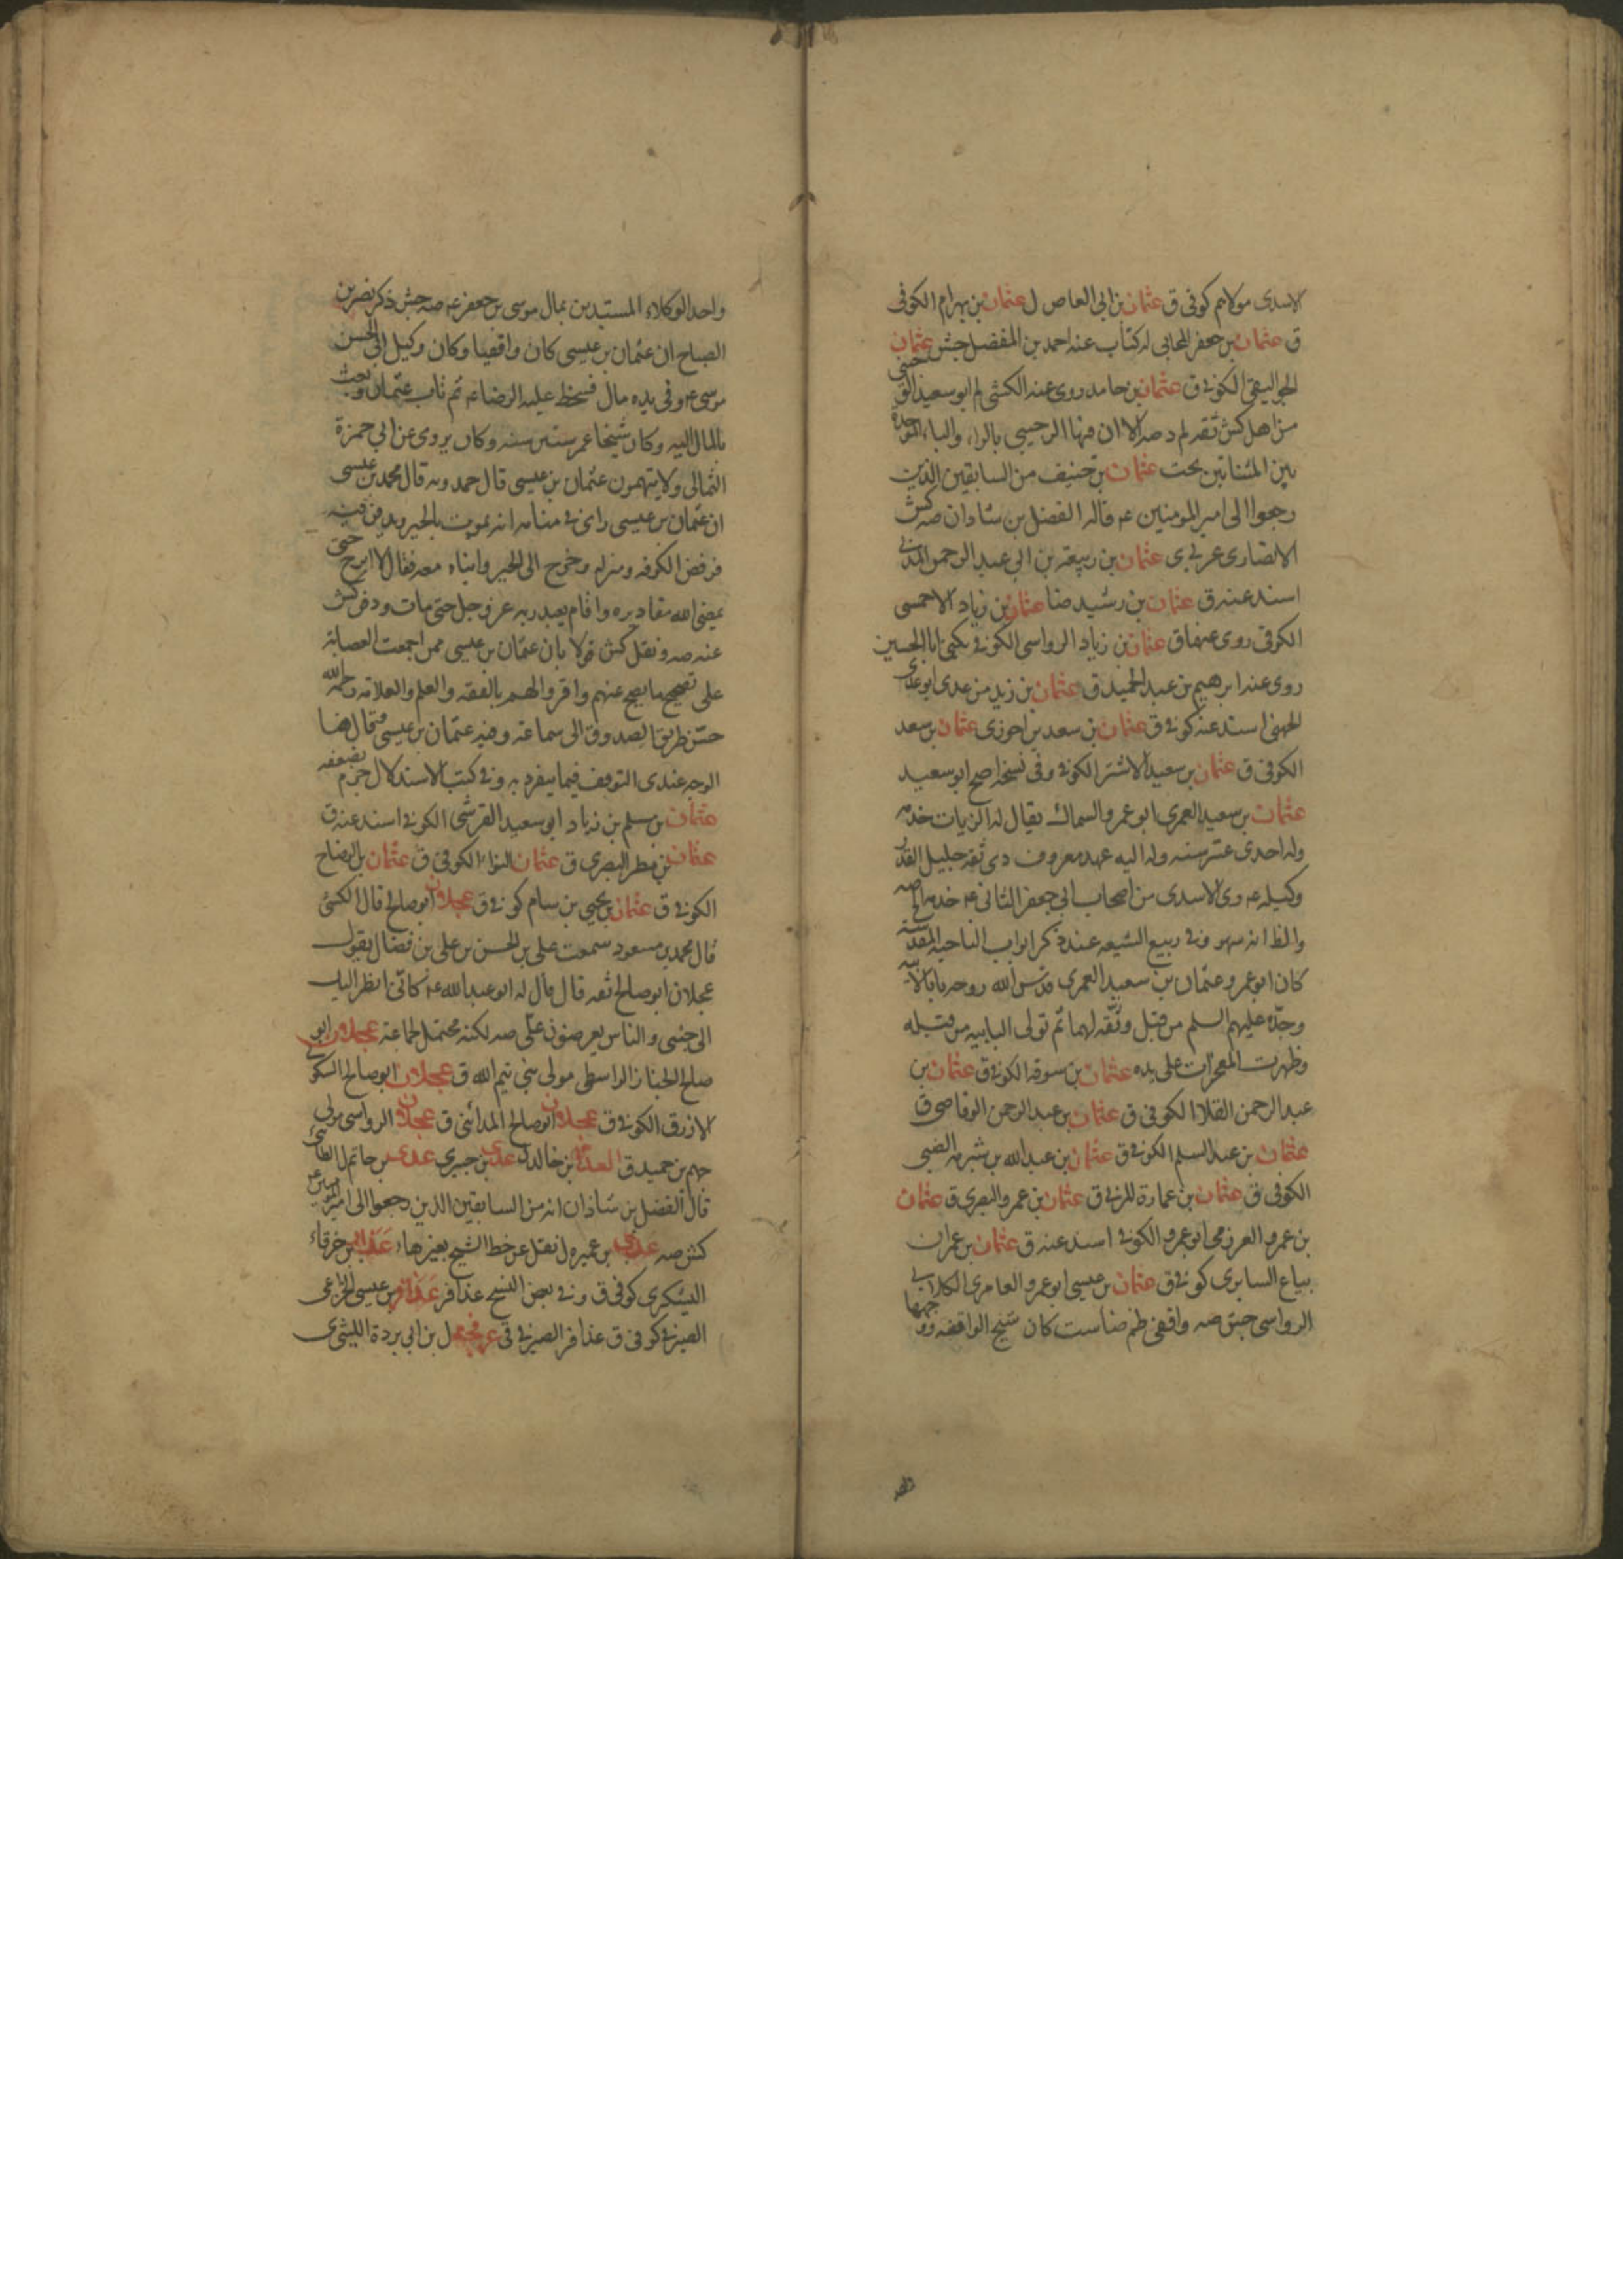 الاسدى مولاهم كوفى ق عثمان بن ابى العاص ل عثمان بن بهرام الكوفى
ق عثمان بن جعفر المحابى له كتاب عنه احمد بن المفضل جش عثمان
الكوفى ق عثمان بن حامد روى عنه الكشى لم ابو سعيد الوجينى
من اهل كش ثقه لم د صه الا ان فيها الرحيبى بالراء والباء الموحدة
بين المثناتين تحت عثمان بن حنيف من السابقين الذين
رجعوا الى امير المومنين ع قاله الفضل بن شاذان صه كش
الانصارى عربى ى عثمان بن ربيعة بن ابى عبد الرحمن المدنى
اسند عنه ق عثمان بن رشيد ضا عثمان بن زياد الاحمسى
الكوفى روى عنهما ق عثمان بن زياد الرواسى الكوفى يكنى ابا الحسين
روى عنه ابرهيم بن عبد الحميد ق عثمان بن زيد بن عدى ابو عدى
الجهنى اسند عنه كوفى ق عثمان بن سعد بن احوزى عثمان بن سعد
الكوفى ق عثمان بن سعيد الاشتر الكوفى وفى نسخة اصح ابو سعيد
عثمان بن سعيد العمرى ابو عمرو السمان يقال له الزيات خدمه
وله احدى عشر سنه وله اليه عهد معروف دى ثقه جليل القدر
وكيله ع رى الاسدى من اصحاب ابى جعفر الثانى ع خدمه الخ صه
والظ انه سهو وفى ربيع الشيعه عند ذكر ابواب الناحيه المقدسة
كان ابو عمرو عثمان بن سعيد العمرى قدس الله روحه بابا لابيه
وجده عليهم السلم من قبل وثقه لهما ثم تولى البابيه من قبله
وظهرت المعجزات على يده عثمان بن سوقه الكوفى ق عثمان بن
عبد الرحمن القلاا الكوفى ق عثمان بن عبد الرحمن الوقاصى ق
عثمان بن عبد السلم الكوفى ق عثمان بن عبد الله بن شبرمه الضبى
الكوفى ق عثمان بن عمارة المزنى ق عثمان بن عمرو البصرى ق عثمان
بن عمرو العرزمى ابو عمرو الكوفى اسند عنه ق عثمان بن عمران
بياع السابرى كوفى ق عثمان بن عيسى ابو عمرو العامرى الكلابى
الرواسى جش صه واقفى ظم ضا ست كان شيخ الواقفه ووجهها
واحد الوكلاء المستبدين بمال موسى بن جعفر ع صه جش ذكر نصر بن
الصباح ان عثمان بن عيسى كان واقفيا وكان وكيل ابى الحسن
موسى ع وفى يده مال فسخط عليه الرضا ع ثم تاب عثمان وبعث
بالمال اليه وكان شيخا عمر ستين سنه وكان يروى عن ابى حمزة
الثمالى ولا يتهمون عثمان بن عيسى قال حمدويه قال محمد بن عيسى
ان عثمان بن عيسى راى فى منامه انه يموت بالحير ويدفن فيه
فرفض الكوفه ومنزله وخرج الى الحير وابناه معه فقال لا ابرح حتى
يمضى الله مقاديره واقام يعبد ربه عز وجل حتى مات ودفن كش
عنه صه ونقل كش قولا بان عثمان بن عيسى ممن اجمعت العصابة
على تصحيح ما يصح عنهم واقروا لهم بالفقه والعلم والعلامه رحمه الله
حسن طريق الصدوق الى سماعة وفيه عثمان بن عيسى فقال هنا
الوجه عندى التوقف فيما ينفرد به وفى كتب الاستدلال جزم بضعفه
عثمان بن مسلم بن زياد ابو سعيد القرشى الكوفى اسند عنه ق
عثمان بن مطر البصرى ق عثمان النوا الكوفى ق عثمان بن الوضاح
الكوفى ق عثمان بن يحيى بن سام كوفى ق عجلان ابو صالح قال الكشى
قال محمد بن مسعود سمعت على بن الحسن بن على بن فضال يقول
عجلان ابو صالح ثقه قال قال له ابو عبد الله ع كانى انظر اليك
الى جنبى والناس يعرضون على صه لكنه محتمل لجماعة عجلان ابو
صالح الخباز الواسطى مولى بنى تيم الله ق عجلان ابو صالح السكونى
الازرق الكوفى ق عجلان ابو صالح المدائنى ق عجلان الرواسى مولى
جهم بن حميد ق العداء بن خالد ل عدى بن جبرى عدى بن حاتم ل الطائى
قال الفضل بن شاذان انه من السابقين الذين رجعوا الى امير المومنين ع
كش صه عدى بن عميره ل نقل عن خط الشيخ بغير هاء بن خرقاء
اليشكرى كوفى ق وفى بعض النسخ عذافر عذافر بن عيسى الخزاعى
الصيرفى كوفى ق عذافر الصيرفى فى ل بن ابى بردة الليثى ى